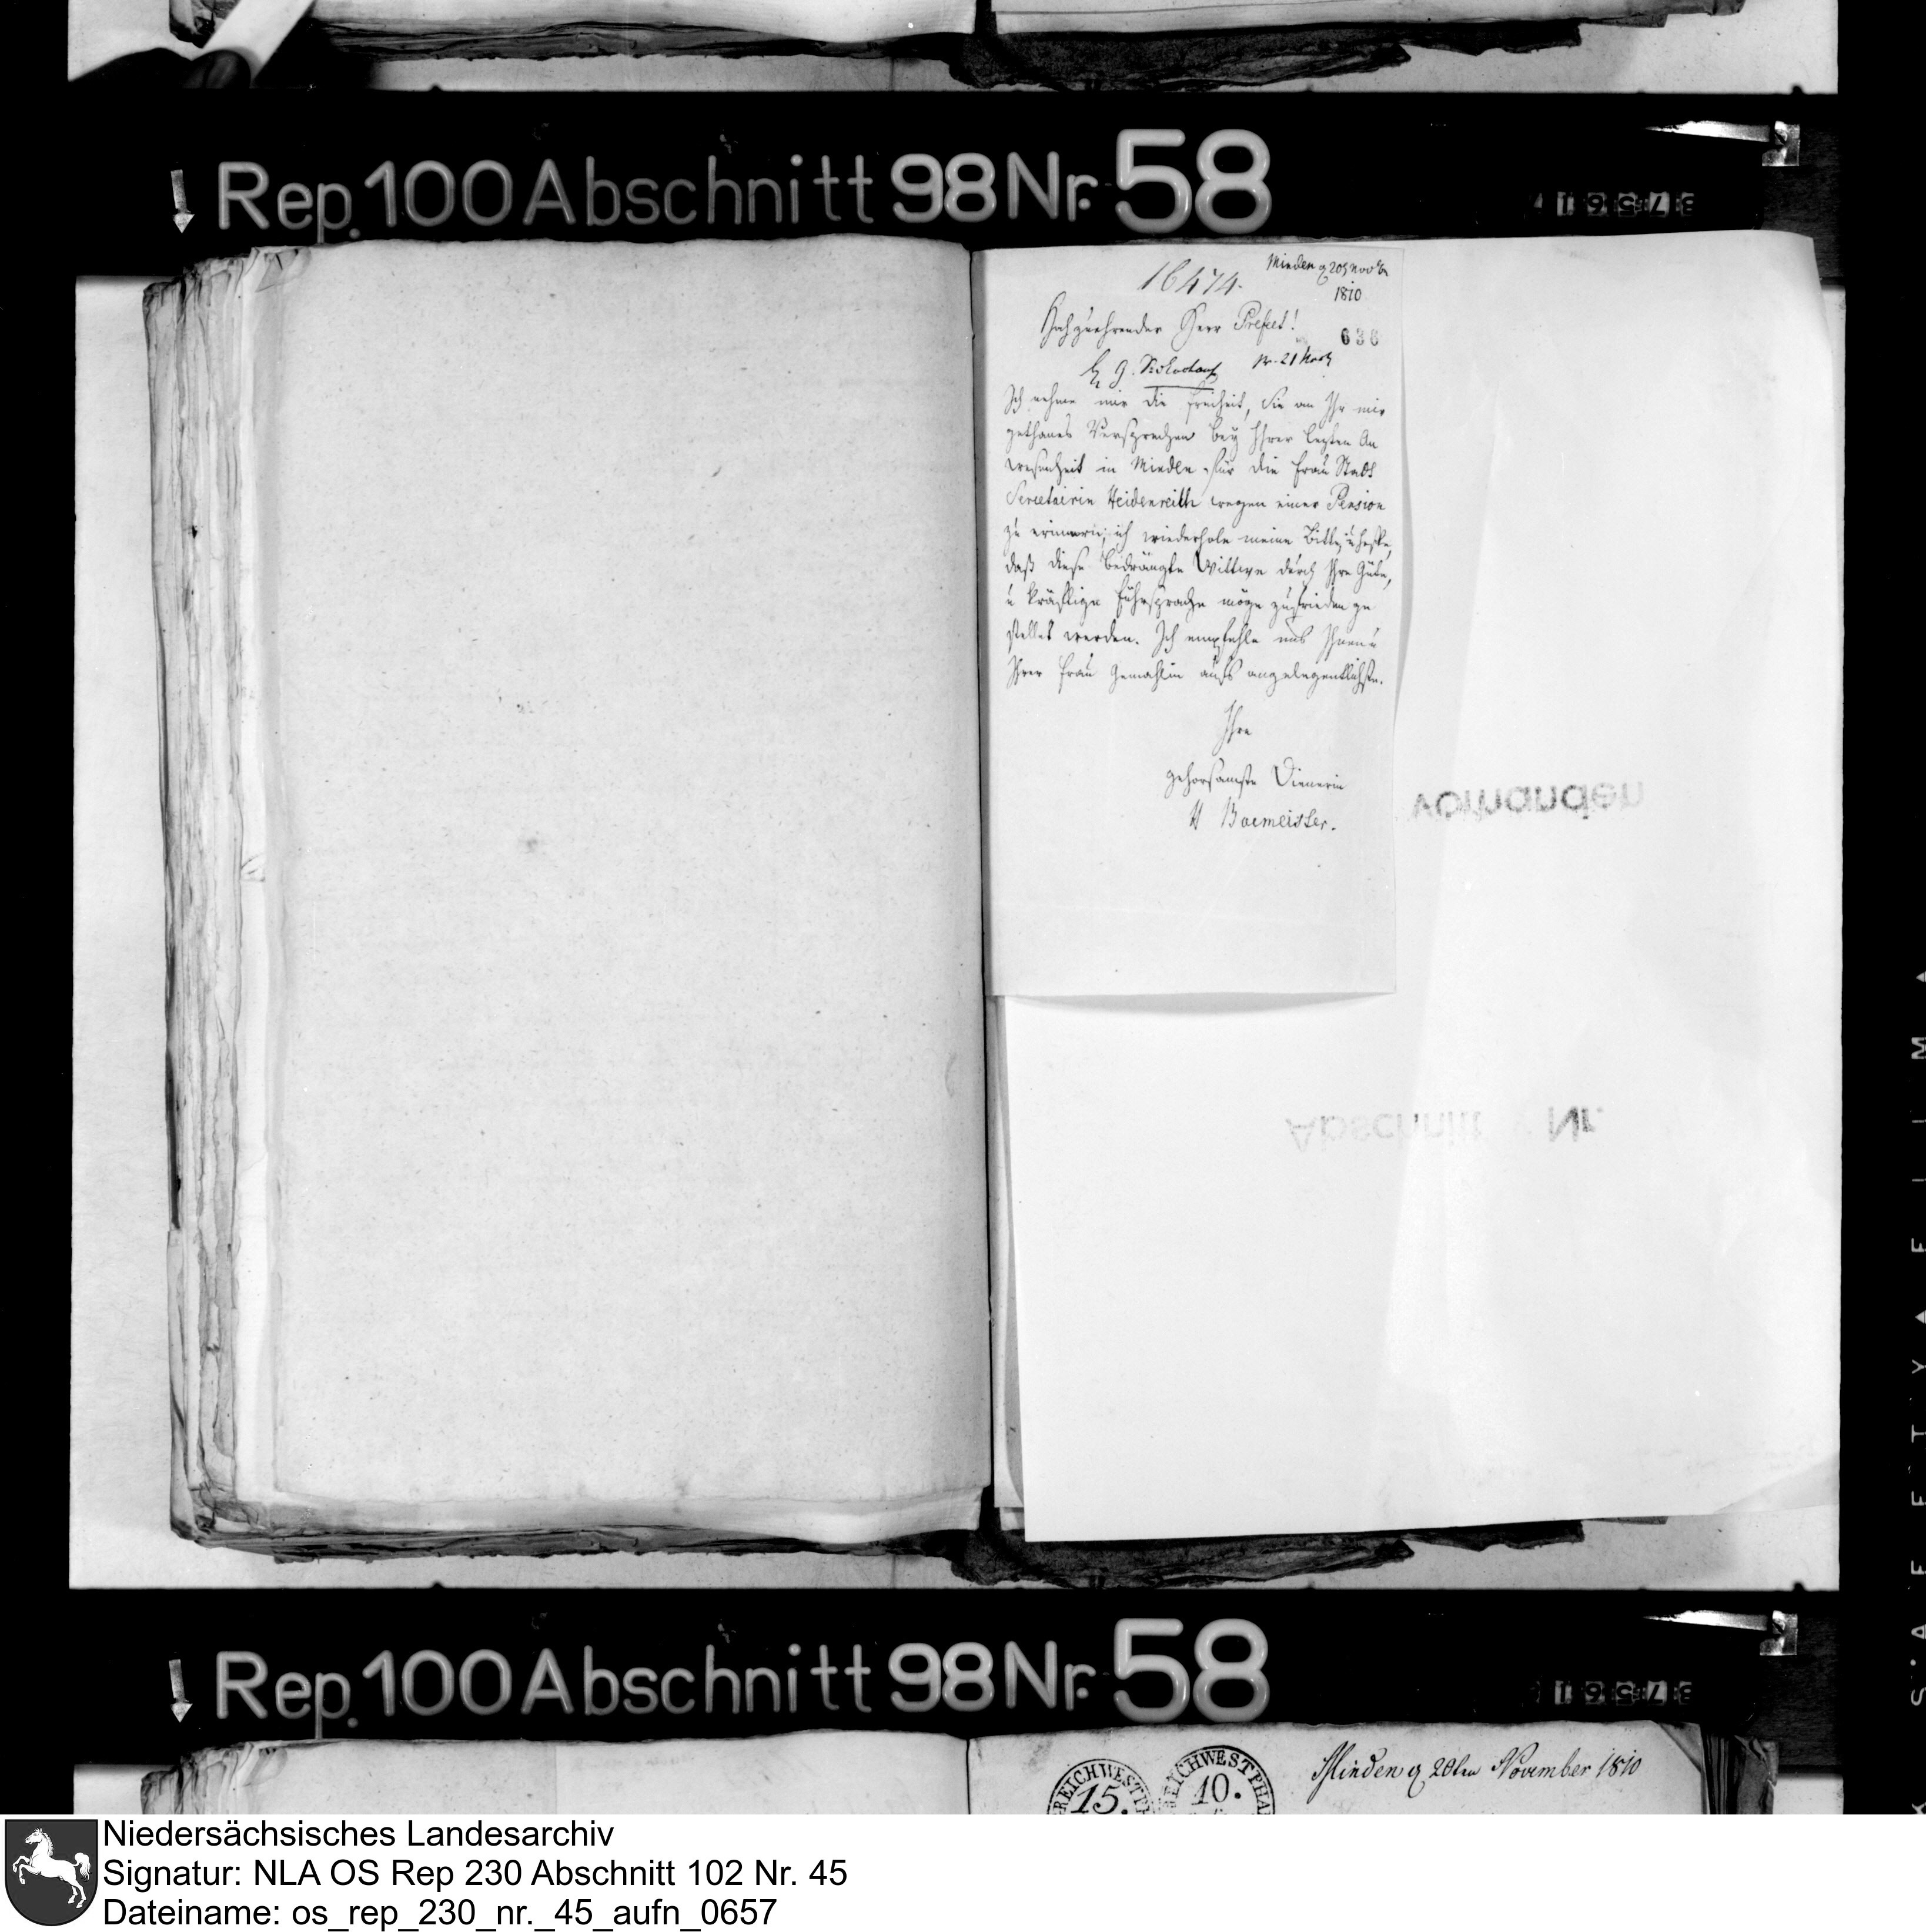 Rep. 100 Abschnitt 98 Nr. 58
16474.
Minden 20 Nov
1810
Hochzuehrender Herr Prefect!
636
21 Nov
Ich nehme mir die Freiheit, Sie an Ihr mir
gethanes Versprechen bey Ihrer lezten An
wesenheit in Minden, für die Frau Stadt
Secretairin Heidenreith wegen einer Pension
zu erinnern, ich wiederhole meine Bitte, u hoffe,
daß diese bedrängte Wittwe durch Ihre Güte,
u kräftige Führsprache möge zufrieden ge
stellet werden. Ich empfehle uns Ihnen u
Ihrer Frau Gemahlin aufs angelegentlichste.
Ihre
gehorsamste Dienerin
Bacmeister.
vorhanden
Abschnitt Nr.
Rep. 100 Abschnitt 98 Nr. 58
15.
10.
Minden 20ten November 1810
Niedersächsisches Landesarchiv
Signatur: NLA OS Rep 230 Abschnitt 102 Nr. 45
Dateiname: os_rep_230_nr._45_aufn_0657